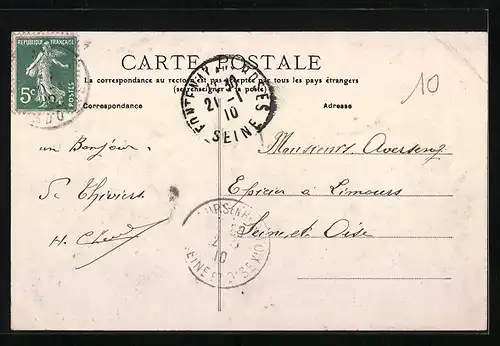 REPUBLIQUE FRANÇAISE
5c
POSTES
CARTE POSTALE
La correspondance au recto n'est pas acceptée par tous les pays étrangers
(se renseigner à la poste)
Correspondance
Adresse
10
FONTENAY AUX ROSES
21 -1
10
SEINE
un Bonjour
Monsieur Averseng
Epicier à Limours
Seine et Oise
H.
10
SEINE ET OISE